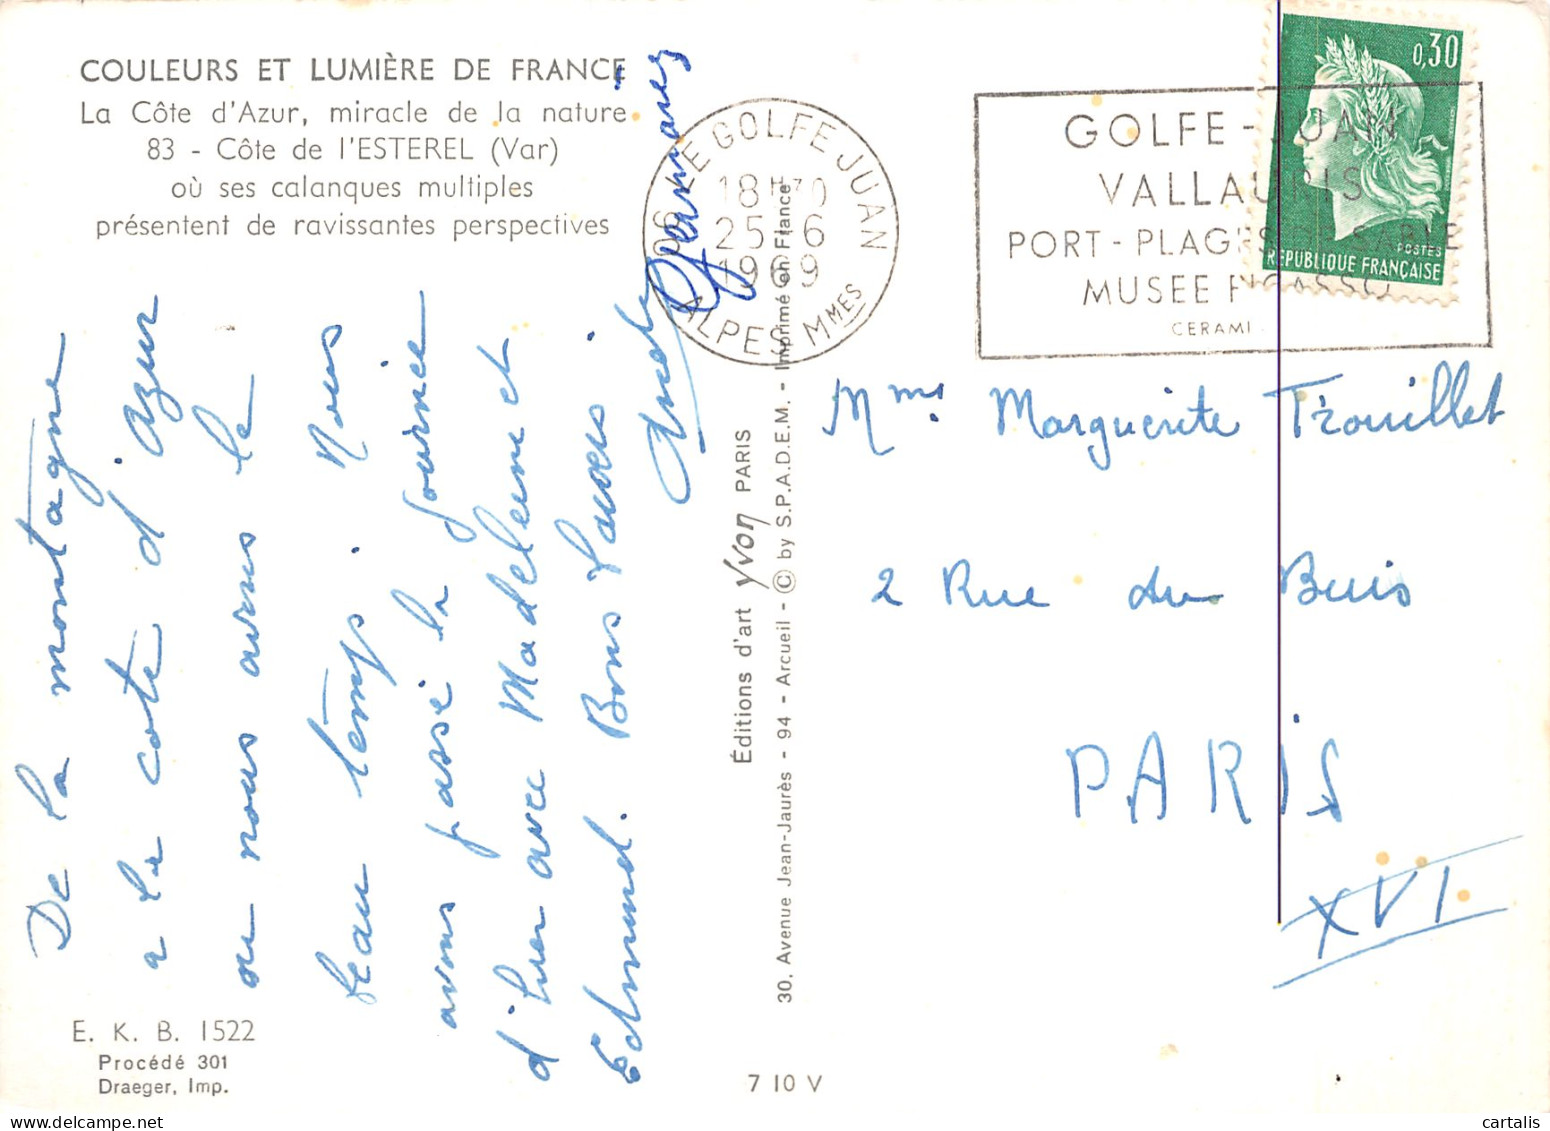 COULEURS ET LUMIÈRE DE FRANCE
La Côte d'Azur, miracle de la nature
83 - Côte de l'ESTEREL (Var)
où ses calanques multiples
présentent de ravissantes perspectives
De la montagne
a la cote d'Azur
ou nous avons le
beau temps. Nous
avons passé la journée
d'hier avec Madeleine et
Edmond. Bons
Germaine
E. K. B. 1522
Procédé 301
Draeger, Imp.
Éditions d'art Yvon PARIS
30. Avenue Jean-Jaurès - 94 - Arcueil - © by S.P.A.D.E.M. - Imprimé en France
7 10 V
06 LE GOLFE JUAN
18H30
25-6
1969
ALPES MMES
GOLFE-JUAN
VALLAURIS
PORT-PLAGES SABLE
MUSEE PICASSO
CERAMI
0,30
POSTES
REPUBLIQUE FRANÇAISE
Mme Marguerite Trouillet
2 Rue du Buis
PARIS
XVI
cartalis